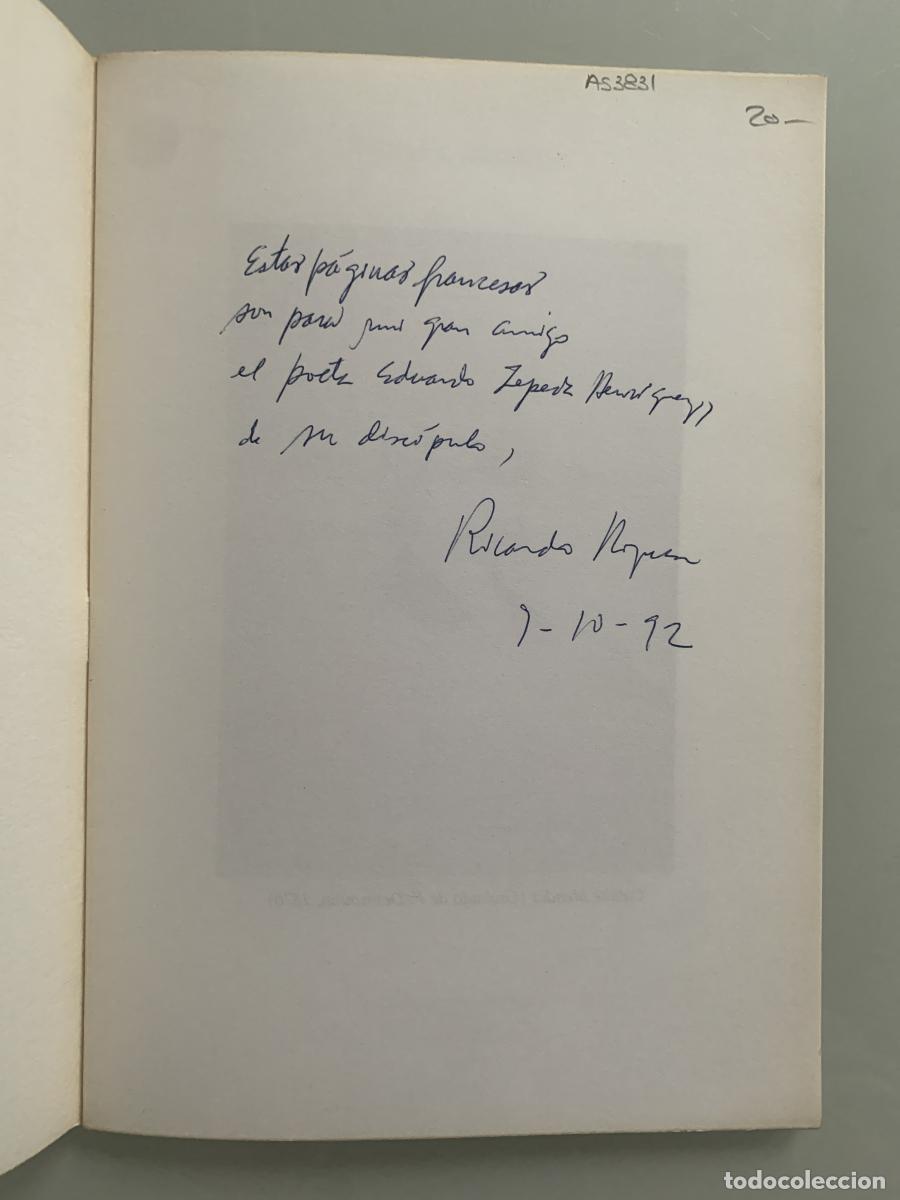 AS3831
20-
Estas páginas francesas
son para mi gran amigo
el poeta Eduardo Zepeda Henríquez,
de su discípulo,
Ricardo
9-10-92
todocoleccion